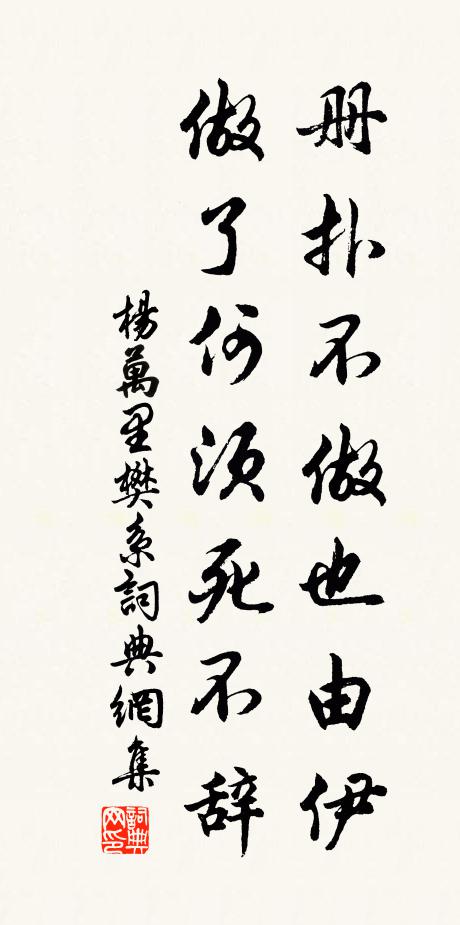 册扑不做也由伊
做了何须死不辞
楊萬里樊系詞典網集
詞典网印